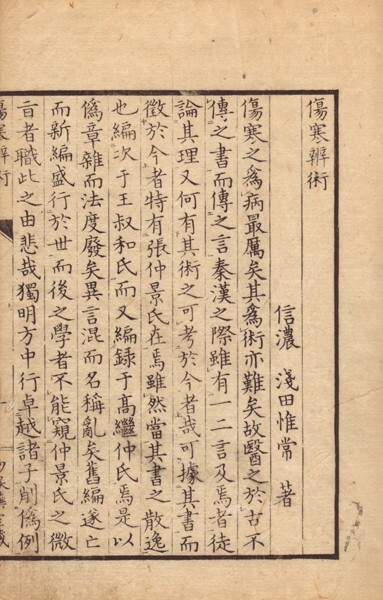 傷寒辨術
信濃 淺田惟常 著
傷寒之爲病最厲矣其爲術亦難矣故醫之於古不
傳之書而傳之言秦漢之際雖有一二言及焉者徒
論其理又何有其術之可考於今者哉可據其書而
徵於今者特有張仲景氏在焉雖然當其書之散逸
也編次于王叔和氏而又編録于高繼仲氏焉是以
僞章雜而法度廢矣異言混而名稱亂矣舊編遂亡
而新編盛行於世而後之學者不能窺仲景氏之微
旨者職此之由悲哉獨明方中行卓越諸子削僞例
傷寒辨術